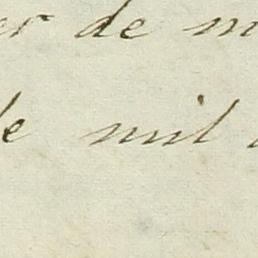 er de m
de mil